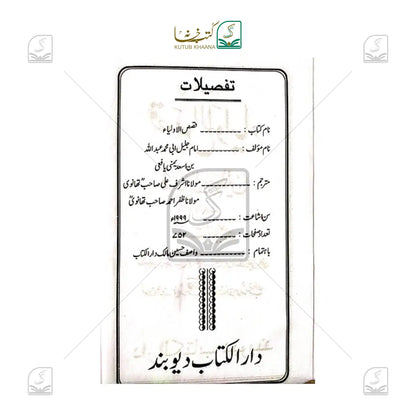 کتب خانہ
KUTUB KHAANA
تفصیلات
نام کتاب : ــــــــ قصص الاولیاء
نام مؤلف : ــــــــ امام جلیل ابی محمد عبداللہ
بن اسعد یمنی یافعی
مترجم : ــــــــ مولانا اشرف علی صاحبؒ تھانوی
مولانا ظفر احمد صاحب تھانویؒ
سن اشاعت : ــــــــ ۱۹۹۹ء
تعداد صفحات : ــــــــ ۷۵۲
باہتمام : ــــــــ واصف حسین مالک دارالکتاب
دارالکتاب دیوبند